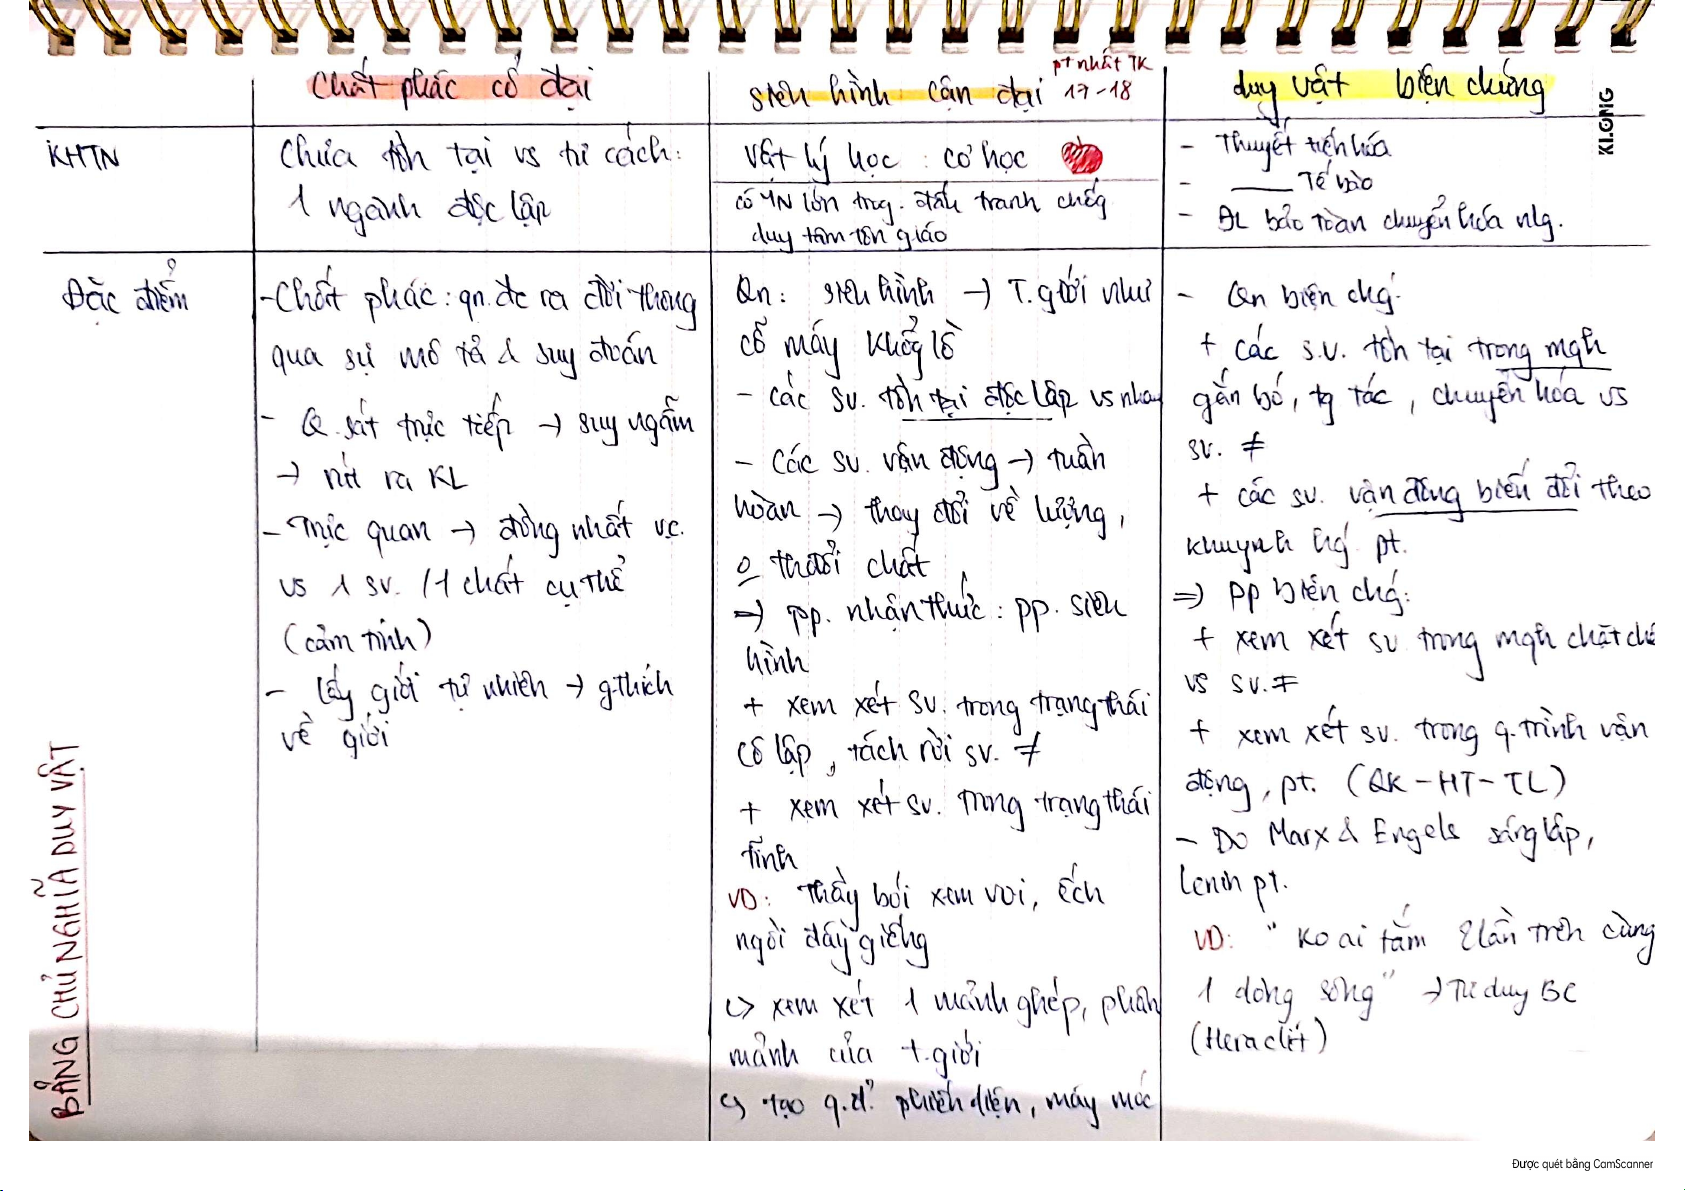 Chất phác cổ đại
siêu hình cận đại
pt nhất TK
17-18
duy vật biện chứng
KLONG
KHTN
Chưa tồn tại vs tư cách:
1 ngành độc lập
Vật lý học : cơ học
có YN lớn trog. đấu tranh chốg
duy tâm tôn giáo
- Thuyết tiến hóa
- ____ Tế bào
- ĐL bảo toàn chuyển hóa nlg.
Đặc điểm
- Chất phác: qn. đc ra đời thông
qua sự mô tả & suy đoán
- Q. sát trực tiếp → suy ngẫm
→ rút ra KL
- Trực quan → đồng nhất v.c.
vs 1 sv. / 1 chất cụ thể
(cảm tính)
- lấy giới tự nhiên → g.thích
về giới
Qn: siêu hình → T.giới như
cỗ máy khổg lồ
- các sv. tồn tại độc lập vs nhau
- Các sv. vận động → tuần
hoàn → thay đổi về lượng,
o thđổi chất
⇒ pp. nhận thức: pp. siêu
hình
+ xem xét sv. trong trạng thái
cô lập, tách rời sv. ≠
+ xem xét sv. trong trạng thái
tĩnh
VD: Thầy bói xem voi, ếch
ngồi đáy giếng
↳ xem xét 1 mảnh ghép, phân
mảnh của t.giới
↳ tạo q.đ' phiến diện, máy móc
- Qn biện chg.
+ các s.v. tồn tại trong mqh
gắn bó, tg tác, chuyển hóa vs
sv. ≠
+ các sv. vận động biến đổi theo
khuynh hg' pt.
⇒ PP biện chg:
+ xem xét sv trong mqh chặt chẽ
vs sv. ≠
+ xem xét sv. trong q.trình vận
động, pt. (QK-HT-TL)
- Do Marx & Engels sáng lập,
Lenin pt.
VD: "Ko ai tắm 2 lần trên cùng
1 dòng sông" → Tư duy BC
(Heraclit)
BẢNG CHỦ NGHĨA DUY VẬT
Được quét bằng CamScanner